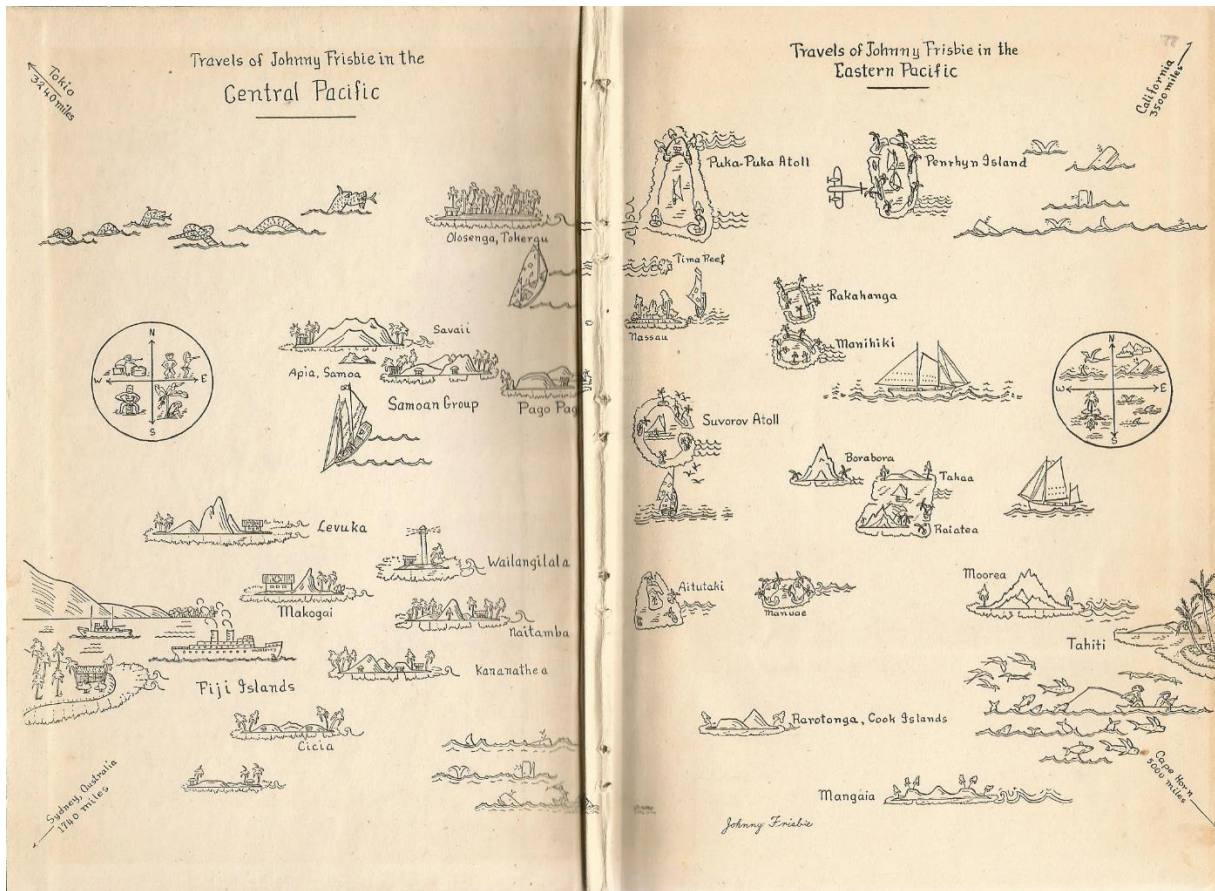 Travels of Johnny Frisbie in the
Central Pacific
Tokio
3240 miles
Olosenga, Tokerau
N
W
E
S
Savaii
Apia, Samoa
Samoan Group
Pago Pag
Levuka
Wailangilala
Makogai
Naitamba
Fiji Islands
Kananathea
Cicia
Sydney, Australia
1740 miles
Travels of Johnny Frisbie in the
Eastern Pacific
California
3500 miles
Puka-Puka Atoll
Penrhyn Island
Tima Reef
Nassau
Rakahanga
Manihiki
N
W
E
S
Suvorov Atoll
Borabora
Tahaa
Raiatea
Aitutaki
Manuae
Moorea
Tahiti
Rarotonga, Cook Islands
Cape Horn
5000 miles
Mangaia
Johnny Frisbie